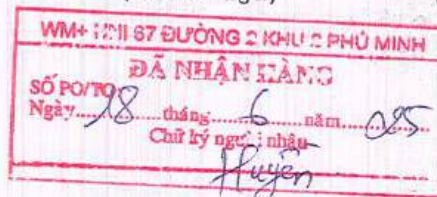 WM+ HNI 67 ĐƯỜNG 2 KHU 2 PHÚ MINH
ĐÃ NHẬN HÀNG
SỐ PO/TO:
Ngày...18...tháng...6...năm...025
Chữ ký người nhận
Huyền